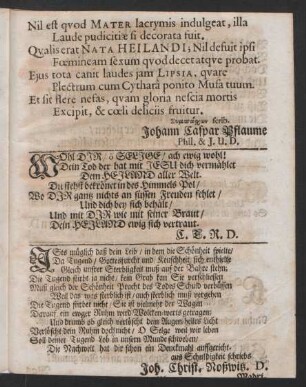 Nil est qvod MATER lacrymis indulgeat, illa
Laude pudicitiæ si decorata fuit.
Qvalis erat NATA HEILANDI; Nil defuit ipsi
Fœmineam sexum qvod decet atqve probat.
Ejus tota canit laudes jam LIPSIA, qvare
Plectrum cum Cythara ponito Musa tuum.
Et sit flere nefas, qvam gloria nescia mortis
Excipit, & cœli deliciis fruitur.
Johann Caspar Pflaume
Phil. & J. U. D.
WOhl DIR, ô SELIGE/ ach ewig wohl!
Dein Tod der hat mit JESU dich vermählet
Dem HEILAND aller Welt.
Du stehst bekrönet in des Himmels Pol/
Wo DIR gantz nichts an süssen Freuden fehlet/
Und dich bey sich behält/
Und mit DIR wie mit seiner Braut/
Dein HEILAND ewig sich vertraut.
C. E. R. D.
ISts müglich daß dein Leib/ in dem die Schönheit spielte/
Die Tugend/ Gottesfurcht und Keuschheit sich enthielte
Gleich unsrer Sterbligkeit muß auf der Bahre stehn.
Die Tugend stirbt ja nicht/ kein Grab kan Sie verschliessen
Muß gleich der Schönheit Pracht des Todes Schuld verbüssen
Weil das was sterblich ist/ auch sterblich muß vergehen
Die Tugend stirbet nicht/ Sie ist vielmehr der Wagen
Darauf ein ewger Ruhm wird Wolcken-werts getragen:
Und drumb ob gleich entseelt den Augen dieses Licht
Verlöscht den Ruhm dochnicht/ O Selge weil wir leben
Soll deiner Tugend Lob in unsern Munde schweben/
Die Nachwelt hat dir schon ein Denckmahl auffgericht.
aus Schuldigkeit schriebs
Joh. Christ. Noßwitz. D.